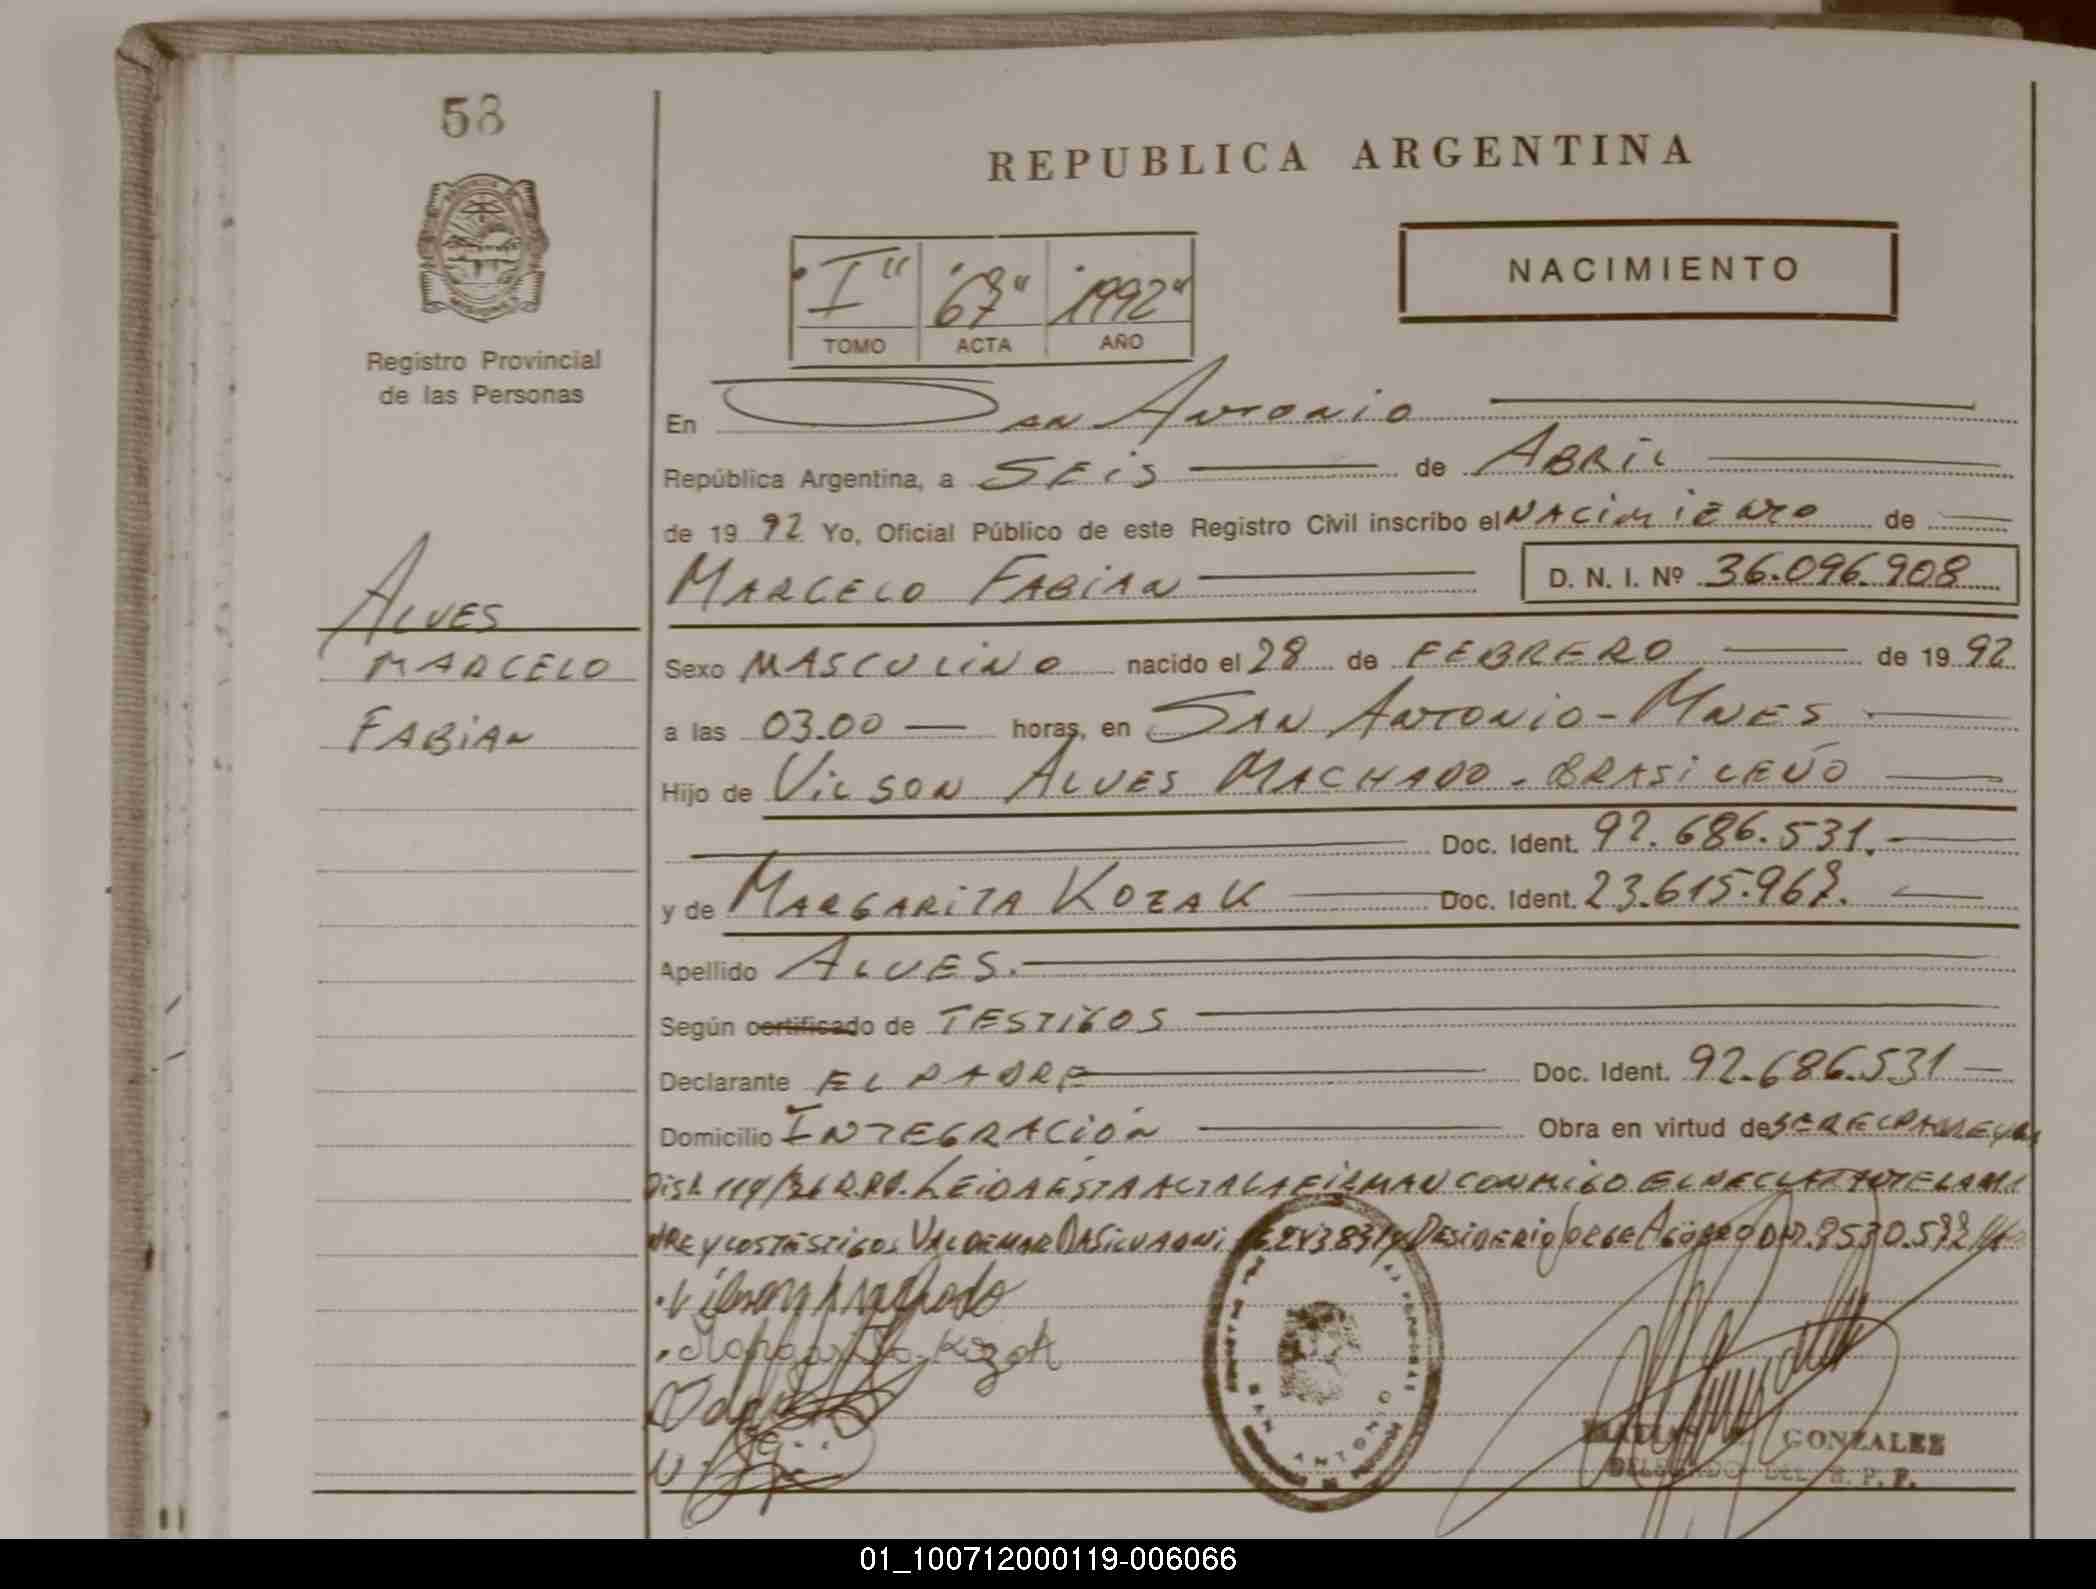 58
REPUBLICA ARGENTINA
NACIMIENTO
"I" "67" "1992"
TOMO ACTA AÑO
Registro Provincial
de las Personas
En San Antonio
República Argentina, a SEIS de ABRIL
de 19 92 Yo, Oficial Público de este Registro Civil inscribo el NACIMIENTO de
MARCELO FABIAN D. N. I. Nº 36.096.908
ALVES
MARCELO
FABIAN
Sexo MASCULINO nacido el 28 de FEBRERO de 19 92
a las 03.00 horas, en SAN ANTONIO - MNES
Hijo de VILSON ALVES MACHADO - BRASILEÑO
Doc. Ident. 92.686.531.
y de MARGARITA KOZAK Doc. Ident. 23.615.967.
Apellido ALVES.
Según certificado de TESTIGOS
Declarante EL PADRE Doc. Ident. 92.686.531
Domicilio INTEGRACIÓN Obra en virtud de SER EL PADRE Y
DISP. 119/86 R.P.P. LEIDA ESTA ACTA LA FIRMAN CONMIGO EL DECLARANTE LA MA
DRE Y LOS TESTIGOS VALDEMAR DA SILVA DNI Y DESIDERIO JORGE
Vilson Machado
Margarita Kozak
SAN ANTONIO
GONZALEZ
DELEGADO DEL R. P. P.
01_100712000119-006066